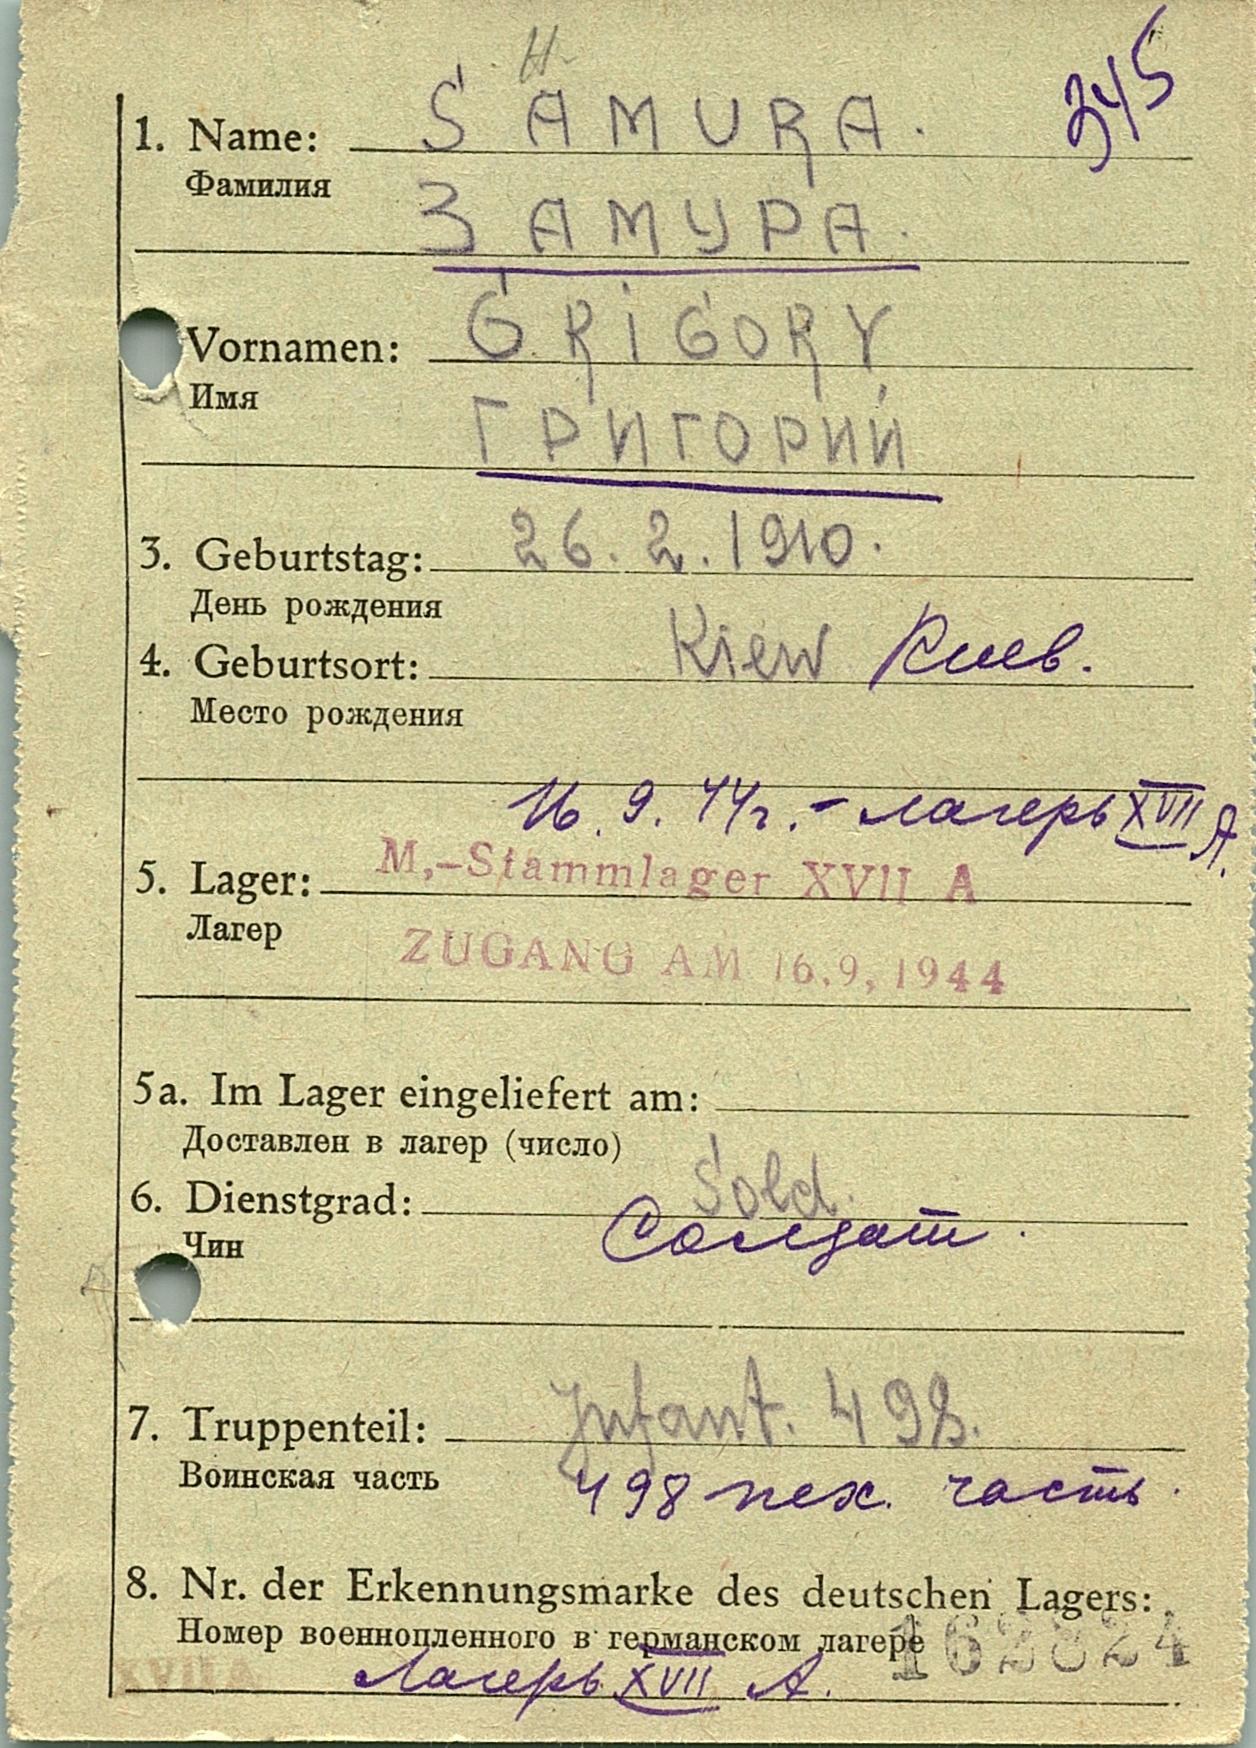 345
1. Name: SAMURA.
Фамилия
ЗАМУРА.
Vornamen: GRIGORY
Имя
ГРИГОРИЙ
3. Geburtstag: 26.2.1910.
День рождения
4. Geburtsort: Kiew Киев.
Место рождения
16.9.44г. - лагерь XVII А.
5. Lager: M,-Stammlager XVII A
Лагер
ZUGANG AM 16.9,1944
5a. Im Lager eingeliefert am:
Доставлен в лагер (число)
6. Dienstgrad: Sold.
Чин
Солдат.
7. Truppenteil: Infant. 498.
Воинская часть
498 пех. часть.
8. Nr. der Erkennungsmarke des deutschen Lagers:
Номер военнопленного в германском лагере
XVII A Лагерь XVII А.